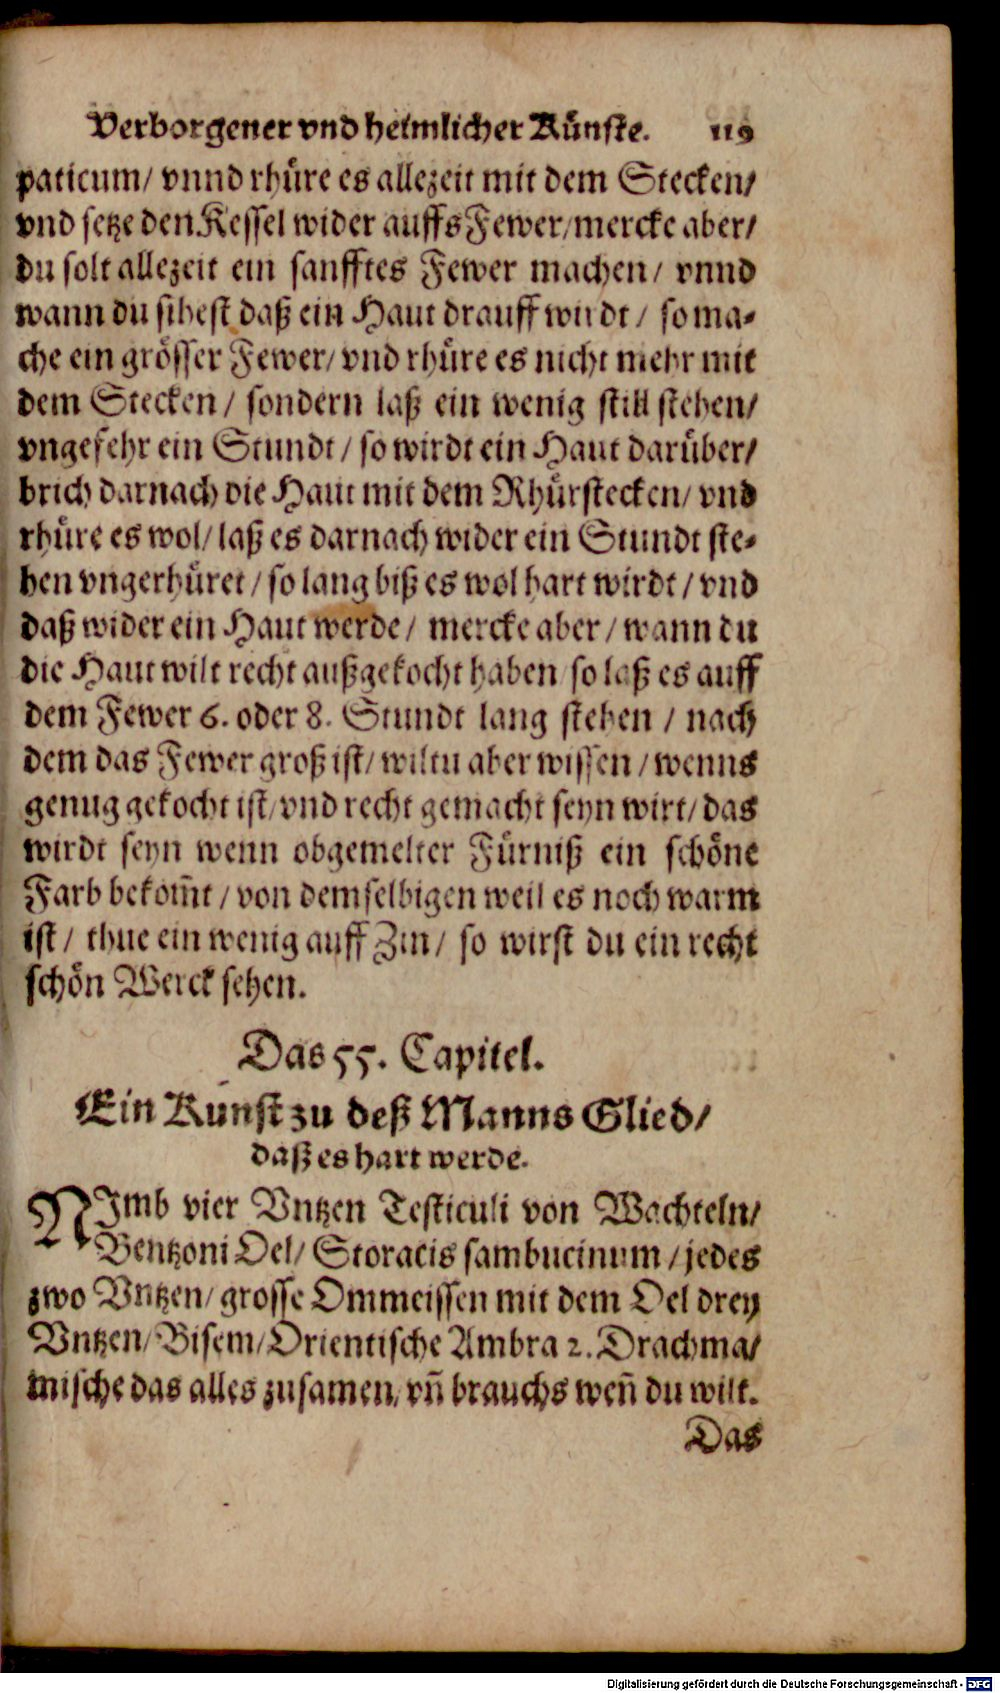 Verborgener vnd heimlicher Künste. 119
paticum/ vnnd rhüre es allezeit mit dem Stecken/
vnd setze den Kessel wider auffs Fewer/ mercke aber/
du solt allezeit ein sanfftes Fewer machen/ vnnd
wann du sihest daß ein Haut drauff wirdt/ so ma-
che ein grösser Fewer/ vnd rhüre es nicht mehr mit
dem Stecken/ sondern laß ein wenig still stehen/
vngefehr ein Stundt/ so wirdt ein Haut darüber/
brich darnach die Haut mit dem Rhürstecken/ vnd
rhüre es wol/ laß es darnach wider ein Stundt ste-
hen vngerhüret/ so lang biß es wol hart wirdt/ vnd
daß wider ein Haut werde/ mercke aber/ wann du
die Haut wilt recht außgekocht haben/ so laß es auff
dem Fewer 6. oder 8. Stundt lang stehen/ nach
dem das Fewer groß ist/ wiltu aber wissen/ wenns
genug gekocht ist/ vnd recht gemacht seyn wirt/ das
wirdt seyn wenn obgemelter Fürniß ein schöne
Farb bekom̃t/ von demselbigen weil es noch warm
ist/ thue ein wenig auff Zin/ so wirst du ein recht
schön Werck sehen.
Das 55. Capitel.
Ein Kunst zu deß Manns Glied/
daß es hart werde.
NImb vier Vntzen Testiculi von Wachteln/
Bentzoni Oel/ Storacis sambucinum/ jedes
zwo Vntzen/ grosse Ommeissen mit dem Oel drey
Vntzen/ Bisem/ Orientische Ambra 2. Drachma/
mische das alles zusamen/ vñ brauchs weñ du wilt.
Das
Digitalisierung gefördert durch die Deutsche Forschungsgemeinschaft - DFG